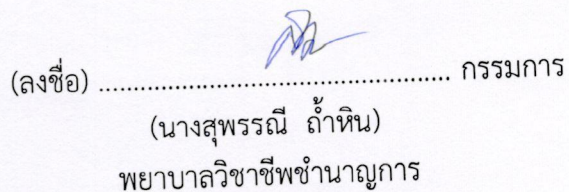 (ลงชื่อ) ................................................ กรรมการ
(นางสุพรรณี ถ้ำหิน)
พยาบาลวิชาชีพชำนาญการ